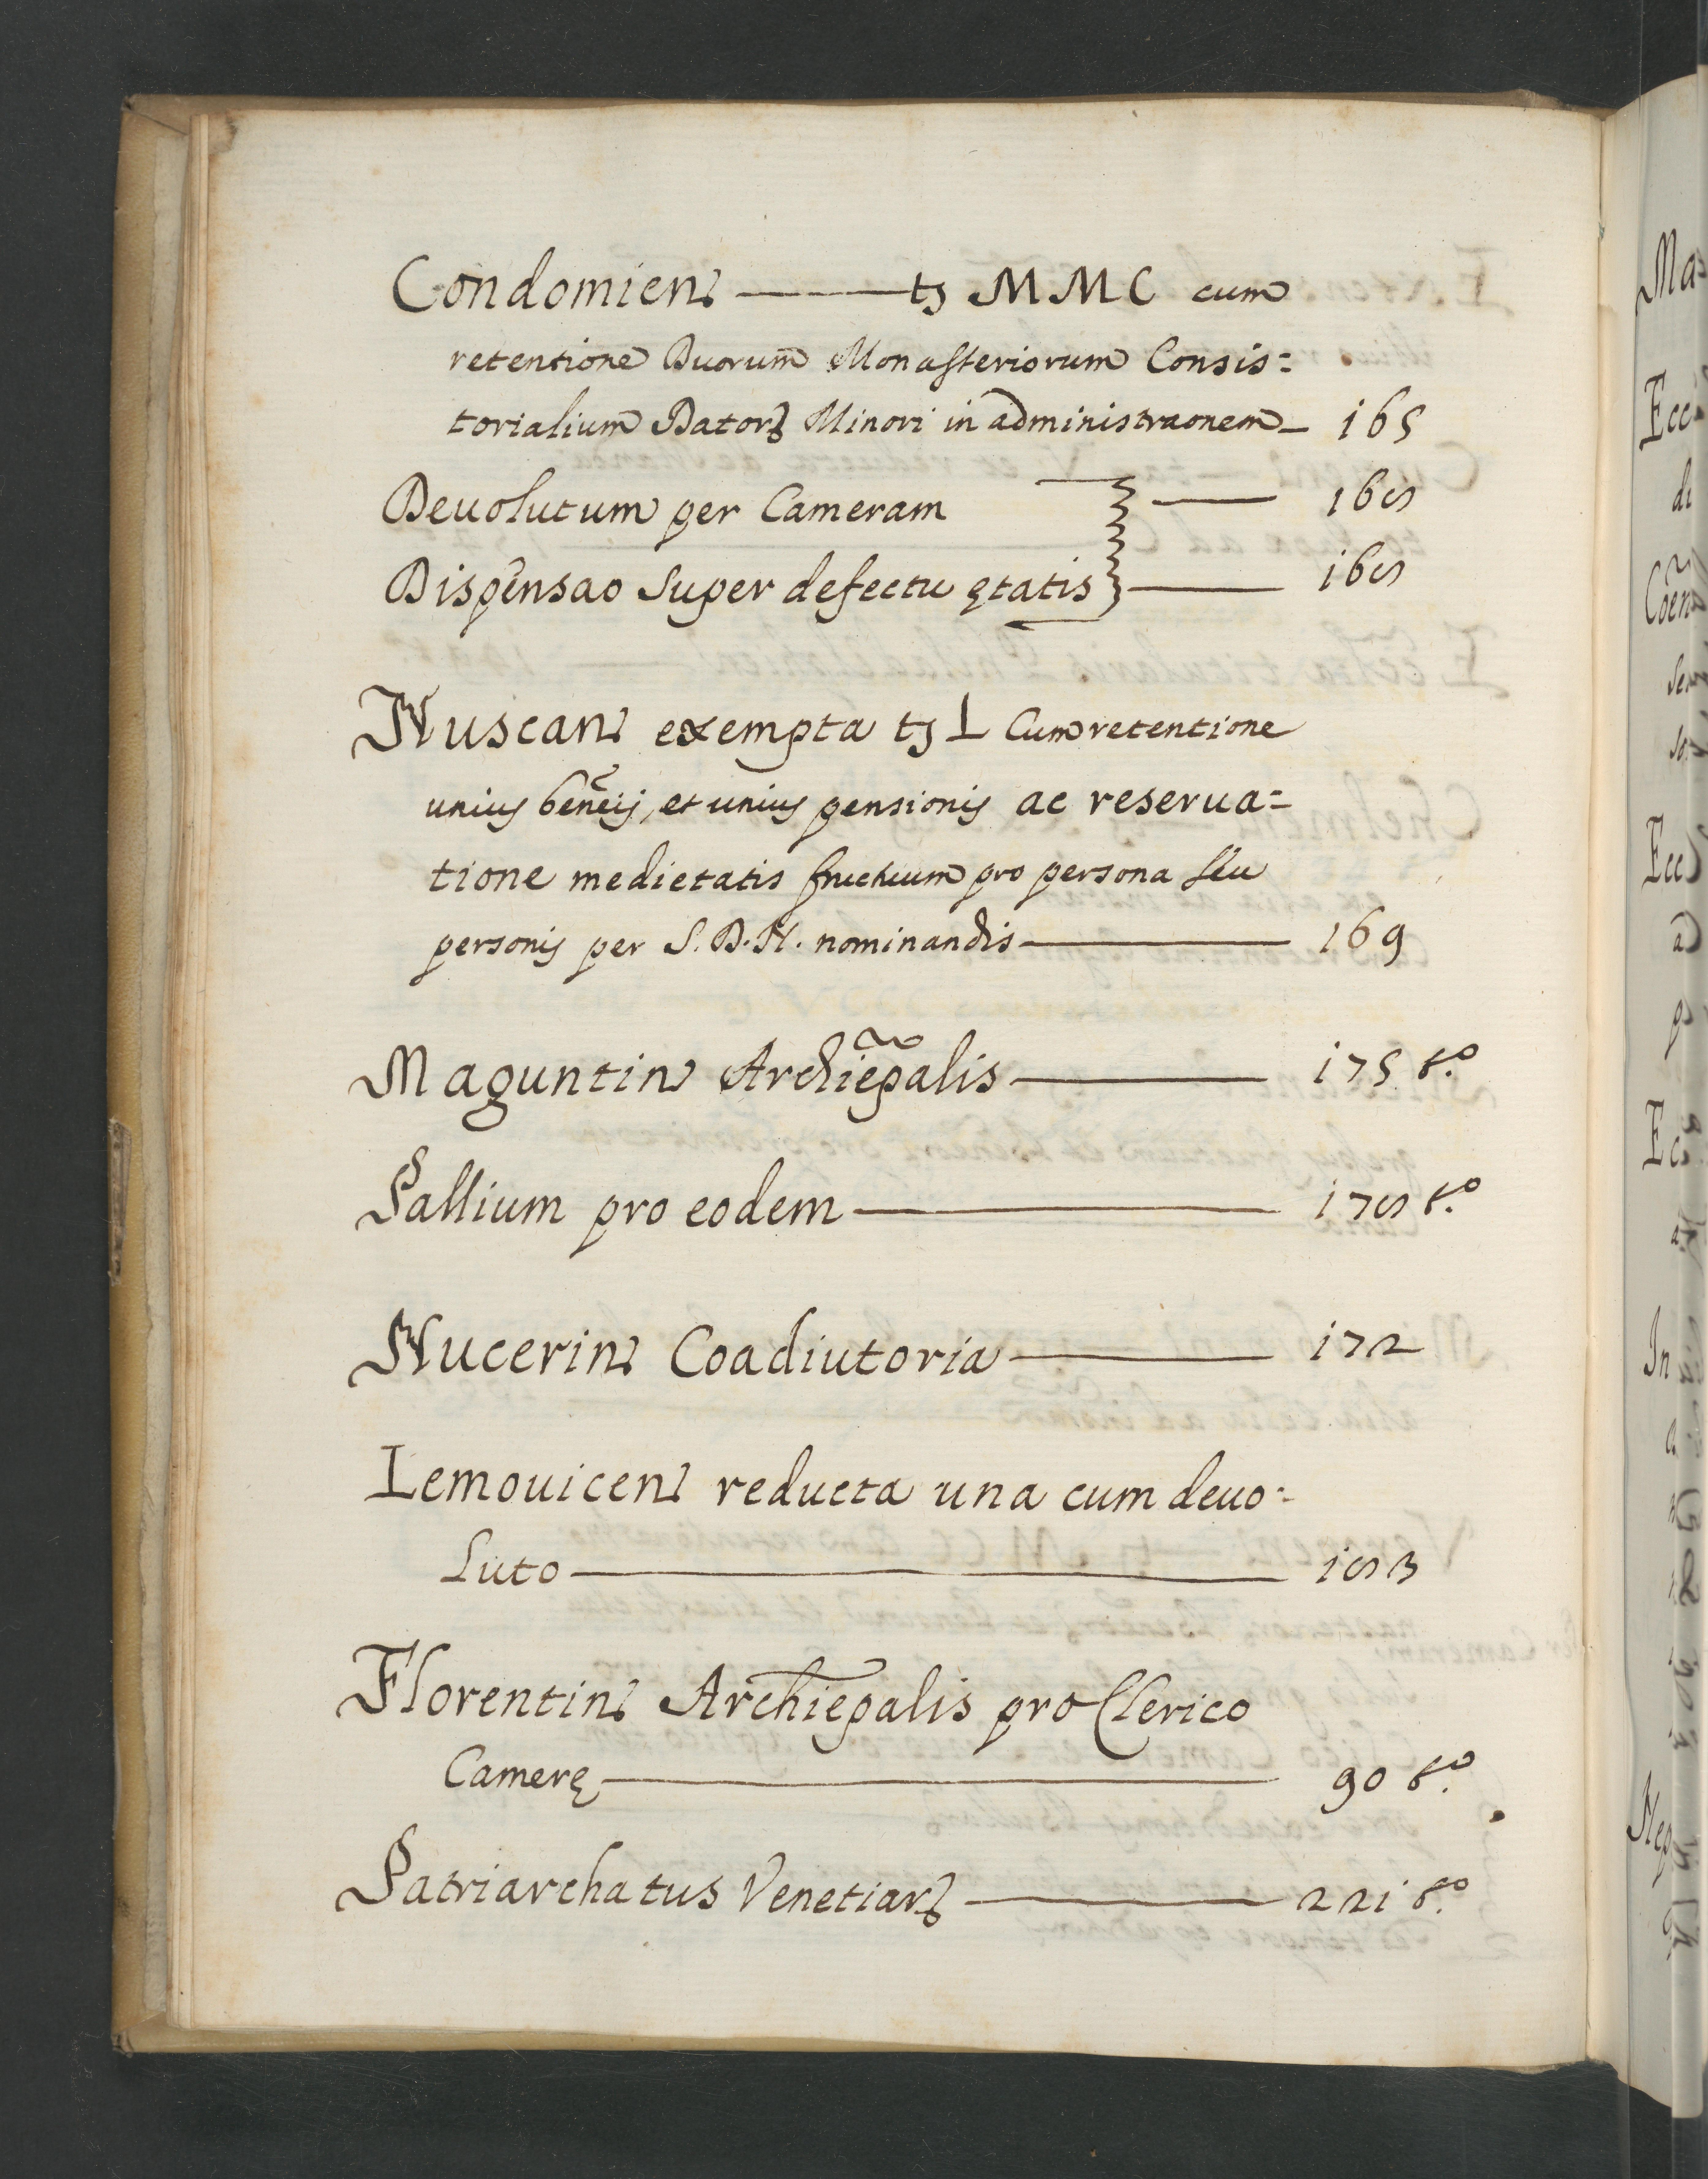 Condomien̄ ——— tꝫ MMC cum
retentione Duorum Monasteriorum Consis=
torialium Datorꝝ Minori in administraonem — 165
Deuolutum per Cameram — 168
Dispensao super defectu ętatis — 168
Nuscan̄ exempta tꝫ L cum retentione
unius beneĩj, et unius pensionis ac reserua=
tione medietatis fructuum pro persona seu
personis per S. D. N. nominandis — 169
Maguntin̄ Archiep̄alis — 175 t.º
Pallium pro eodem — 178 t.º
Nucerin̄ Coadiutoria — 172
Lemouicen̄ reducta una cum deuo=
luto — 183
Florentin̄ Archiep̄alis pro Clerico
Camerę — 90 t.º
Patriarchatus Venetiarꝝ — 221 t.º